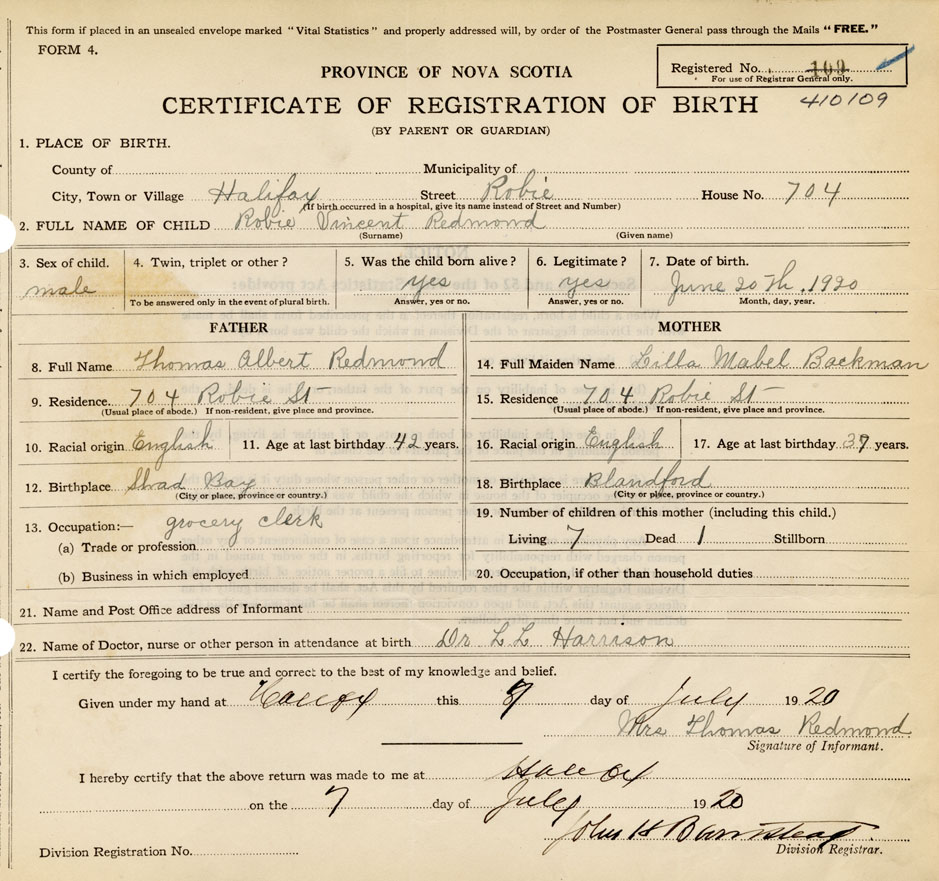 This form if placed in an unsealed envelope marked "Vital Statistics" and properly addressed will, by order of the Postmaster General pass through the Mails "FREE."
FORM 4.
Registered No. 109
For use of Registrar General only.
PROVINCE OF NOVA SCOTIA
CERTIFICATE OF REGISTRATION OF BIRTH 410109
(BY PARENT OR GUARDIAN)
1. PLACE OF BIRTH.
County of Municipality of
City, Town or Village Halifax Street Robie House No. 704
(If birth occurred in a hospital, give its name instead of Street and Number)
2. FULL NAME OF CHILD Robie Vincent Redmond
(Surname) (Given name)
3. Sex of child. 4. Twin, triplet or other? 5. Was the child born alive? 6. Legitimate? 7. Date of birth.
male yes yes June 20th, 1920
To be answered only in the event of plural birth. Answer, yes or no. Answer, yes or no. Month, day, year.
FATHER MOTHER
8. Full Name Thomas Albert Redmond 14. Full Maiden Name Lilla Mabel Backman
9. Residence 704 Robie St 15. Residence 704 Robie St
(Usual place of abode.) If non-resident, give place and province. (Usual place of abode.) If non-resident, give place and province.
10. Racial origin English 11. Age at last birthday 42 years. 16. Racial origin English 17. Age at last birthday 37 years.
12. Birthplace Shad Bay 18. Birthplace Blandford
(City or place, province or country.) (City or place, province or country.)
13. Occupation:— grocery clerk 19. Number of children of this mother (including this child.)
(a) Trade or profession Living 7 Dead 1 Stillborn
(b) Business in which employed 20. Occupation, if other than household duties
21. Name and Post Office address of Informant
22. Name of Doctor, nurse or other person in attendance at birth Dr L L Harrison
I certify the foregoing to be true and correct to the best of my knowledge and belief.
Given under my hand at Halifax this 7 day of July 1920
Mrs Thomas Redmond
Signature of Informant.
I hereby certify that the above return was made to me at Halifax
on the 7 day of July 1920
John H Barnstead
Division Registrar.
Division Registration No.